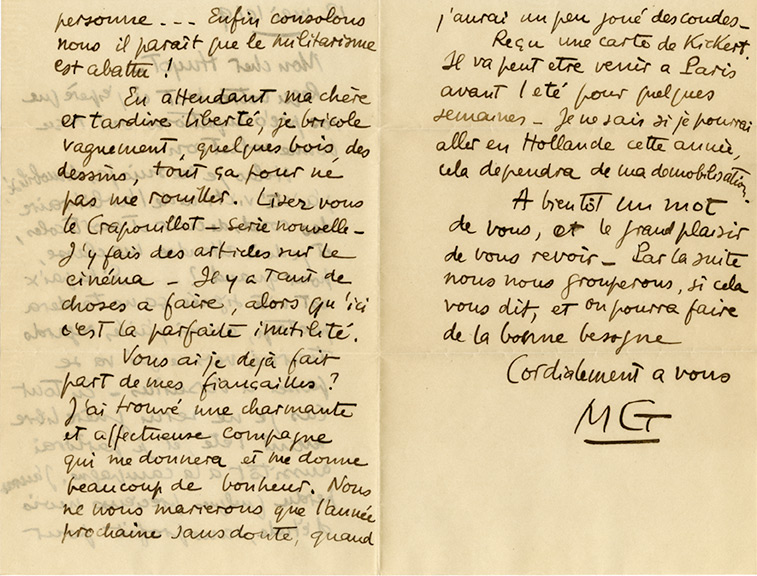 personne --- Enfin consolons
nous il parait que le militarisme
est abattu !
En attendant ma chère
et tardive liberté, je bricole
vaguement, quelques bois, des
dessins, tout ça pour ne
pas me rouiller. Lisez vous
le Crapouillot – Serie nouvelle –
J'y fais des articles sur le
cinéma – Il y a tant de
choses a faire, alors qu'ici
c'est la parfaite inutilité.
Vous ai je dejà fait
part de mes fiançailles ?
J'ai trouvé une charmante
et affectueuse compagne
qui me donnera et me donne
beaucoup de bonheur. Nous
ne nous marierons que l'année
prochaine sans doute, quand
j'aurai un peu joué des coudes –
Reçu une carte de Kickert.
Il va peut etre venir a Paris
avant l'eté pour quelques
semaines – Je ne sais si je pourrai
aller en Hollande cette année,
cela dependra de ma demobilisation.
A bientôt un mot
de vous, et le grand plaisir
de vous revoir – Par la suite
nous nous grouperons, si cela
vous dit, et on pourra faire
de la bonne besogne
Cordialement a vous
MG